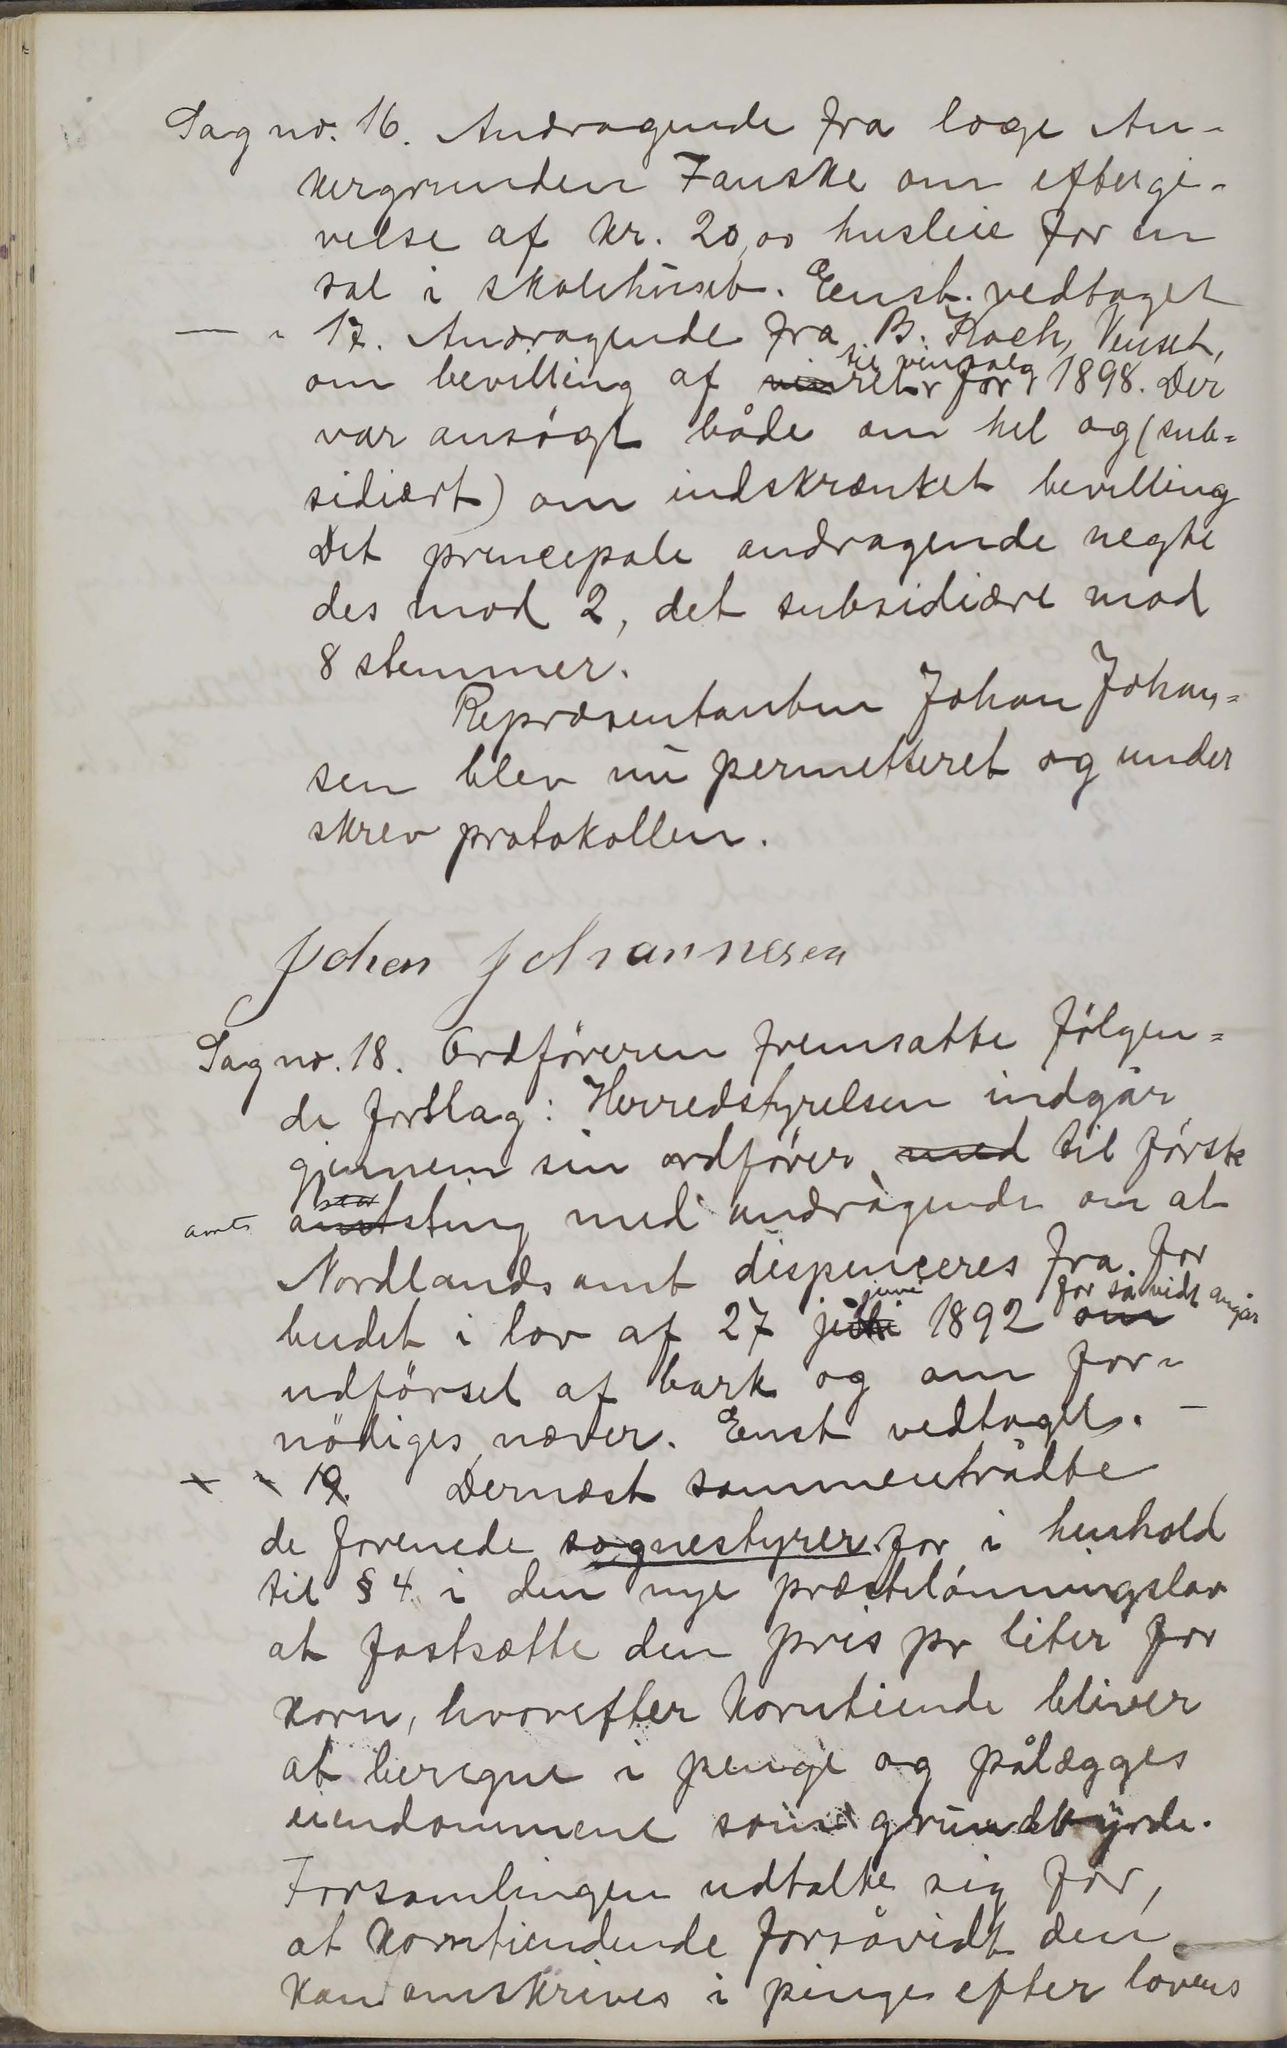 Sag no. 16. Andragende fra loge An-
kergrunden Fauske om eftergi-
velse af kr. 20,00 husleie for en
sal i skolehuset. Eenst. vedtaget
— " 17. Andragende fra B. Koch, Venset,
til vinsalg
om bevilling af vinret for 1898. Der
var ansögt både om hel og (sub=
sidiært) om indskrænket bevilling
Det principale andragende negte
des mod 2, det subsidiære mod
8 stemmer.
Repræsentanten Johan Johan=
sen blev nu permitteret og under
skrev protokollen.
Johan Johannesen
Sag no. 18. Ordföreren fremsatte fölgen=
de forslag: Herredstyrelsen indgår
gjennem sin ordförer med til förste
amts amtsting med andragende om at
Nordlands amt dispenceres fra for
juni for så vidt angår
budet i lov af 27 juli 1892 om
udförsel af bark og om for-
nödiges næver. Enst vedtaget. —
— " 19. Dernæst sammentrådte
de forenede sognestyrer for i henhold
til § 4 i den nye præstelönningslov
at fastsætte den pris pr liter for
korn, hvorefter korntiende bliver
at beregne i penge og pålægges
eiendommene som grundbyrde.
Forsamlingen udtalte sig for,
at korntiendende forsåvidt den
kan omskrives i penge efter lovens